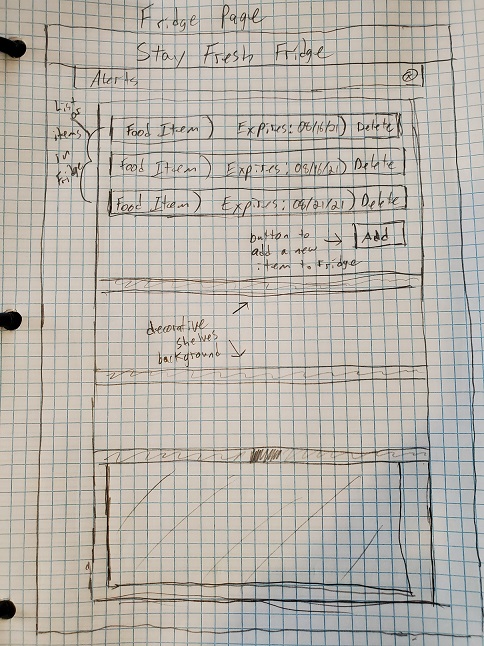 Fridge Page
Stay Fresh Fridge
Alerts
X
List of items in Fridge
Food Item Expires: 08/16/21 Delete
Food Item Expires: 08/16/21 Delete
Food Item Expires: 08/21/21 Delete
button to
add a new
item to fridge
Add
decorative
shelves
background